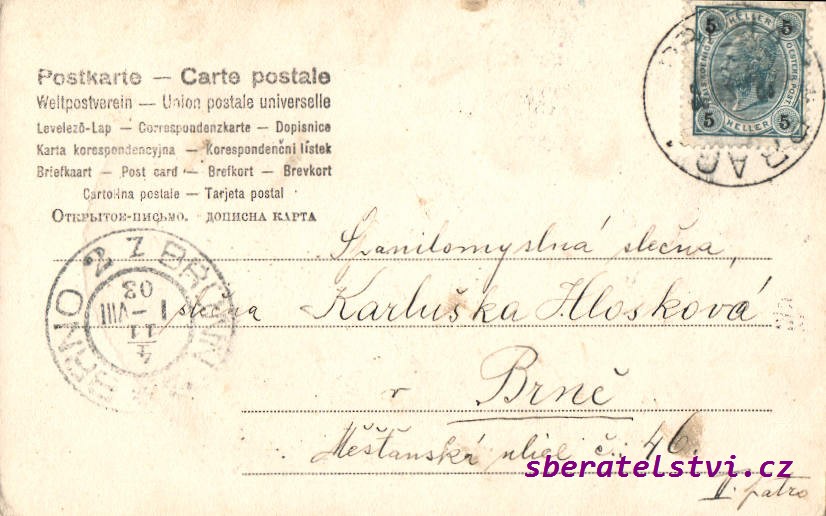 Postkarte — Carte postale
Weltpostverein — Union postale universelle
Levelező-Lap — Correspondenzkarte — Dopisnice
Karta korespondencyjna — Korespondenční lístek
Briefkaart — Post card — Brefkort — Brevkort
Cartolina postale — Tarjeta postal
Открытое-письмо. дописна карта
5 HELLER 5
5 HELLER 5
PRAG
BRÜNN 2 Z BRNO
4/11 VIII 03
Spanilomyslná slečna,
slečna Karluška Hlosková
v Brně
Měšťanská ulice č. 46.
II. patro
sberatelstvi.cz